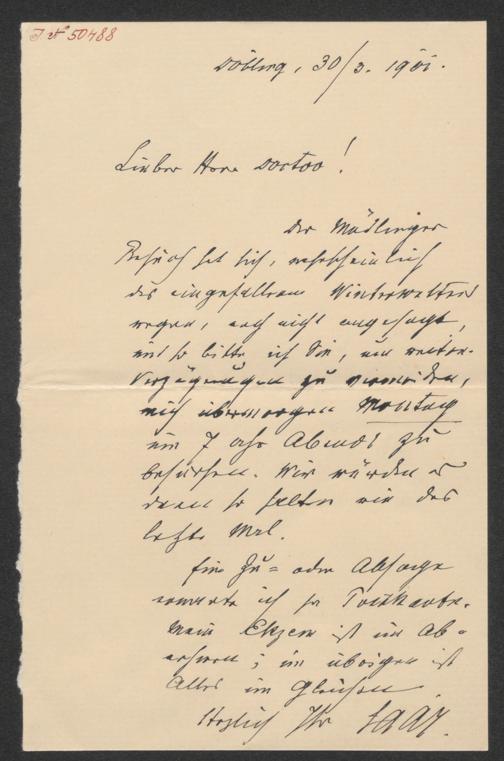 I. N. 50488
Döbling, 30/3. 1901.
Lieber Herr Doctor!
Der Mödlinger
Besuch hat sich, wahrscheinlich
des eingefallenen Winterwetters
wegen, noch nicht angesagt,
und so bitte ich Sie, um weitere
Verzögerungen zu vermeiden,
mich übermorgen Montag
um 7 Uhr Abends zu
besuchen. Wir würden es
dann so halten wie das
letzte Mal.
Eine Zu= oder Absage
erwarte ich per Postkarte.
Mein Ekzem ist im Ab=
nehmen; im übrigen ist
Alles im Gleichen.
Herzlich Ihr Saar.